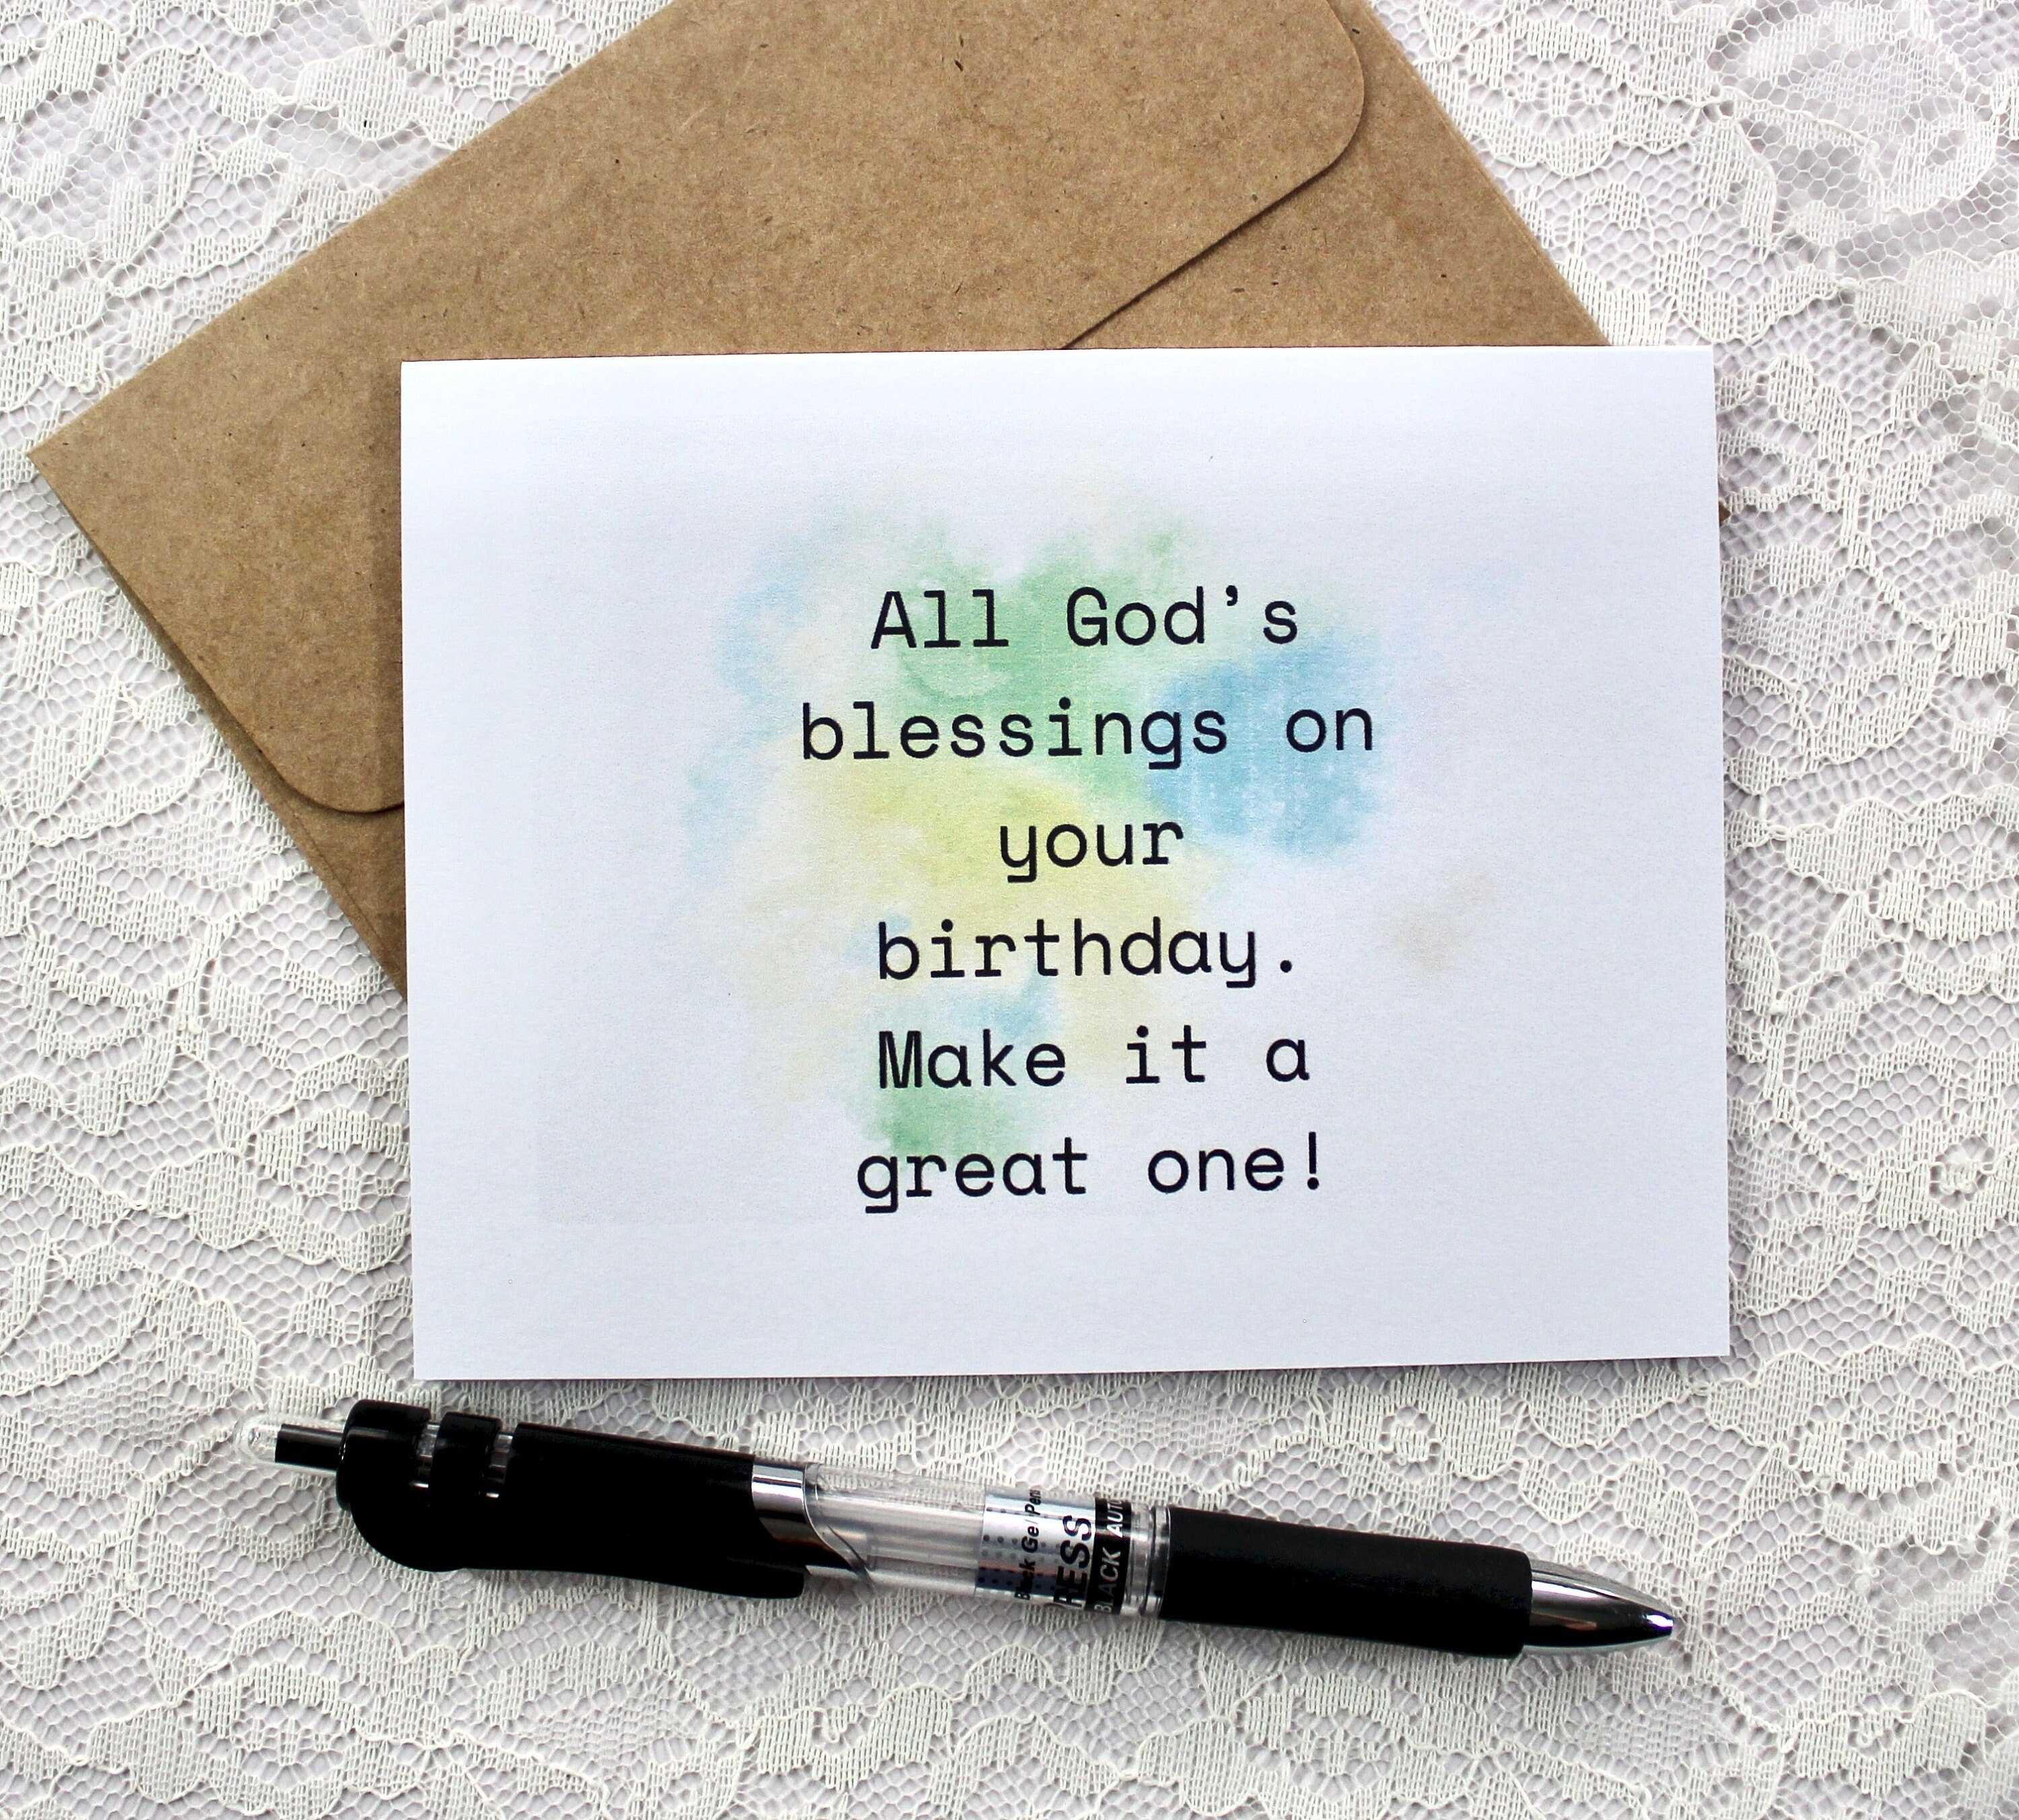 All God’s
blessings on
your
birthday.
Make it a
great one!
Black Gel Pen
RESS
BLACK AUTO